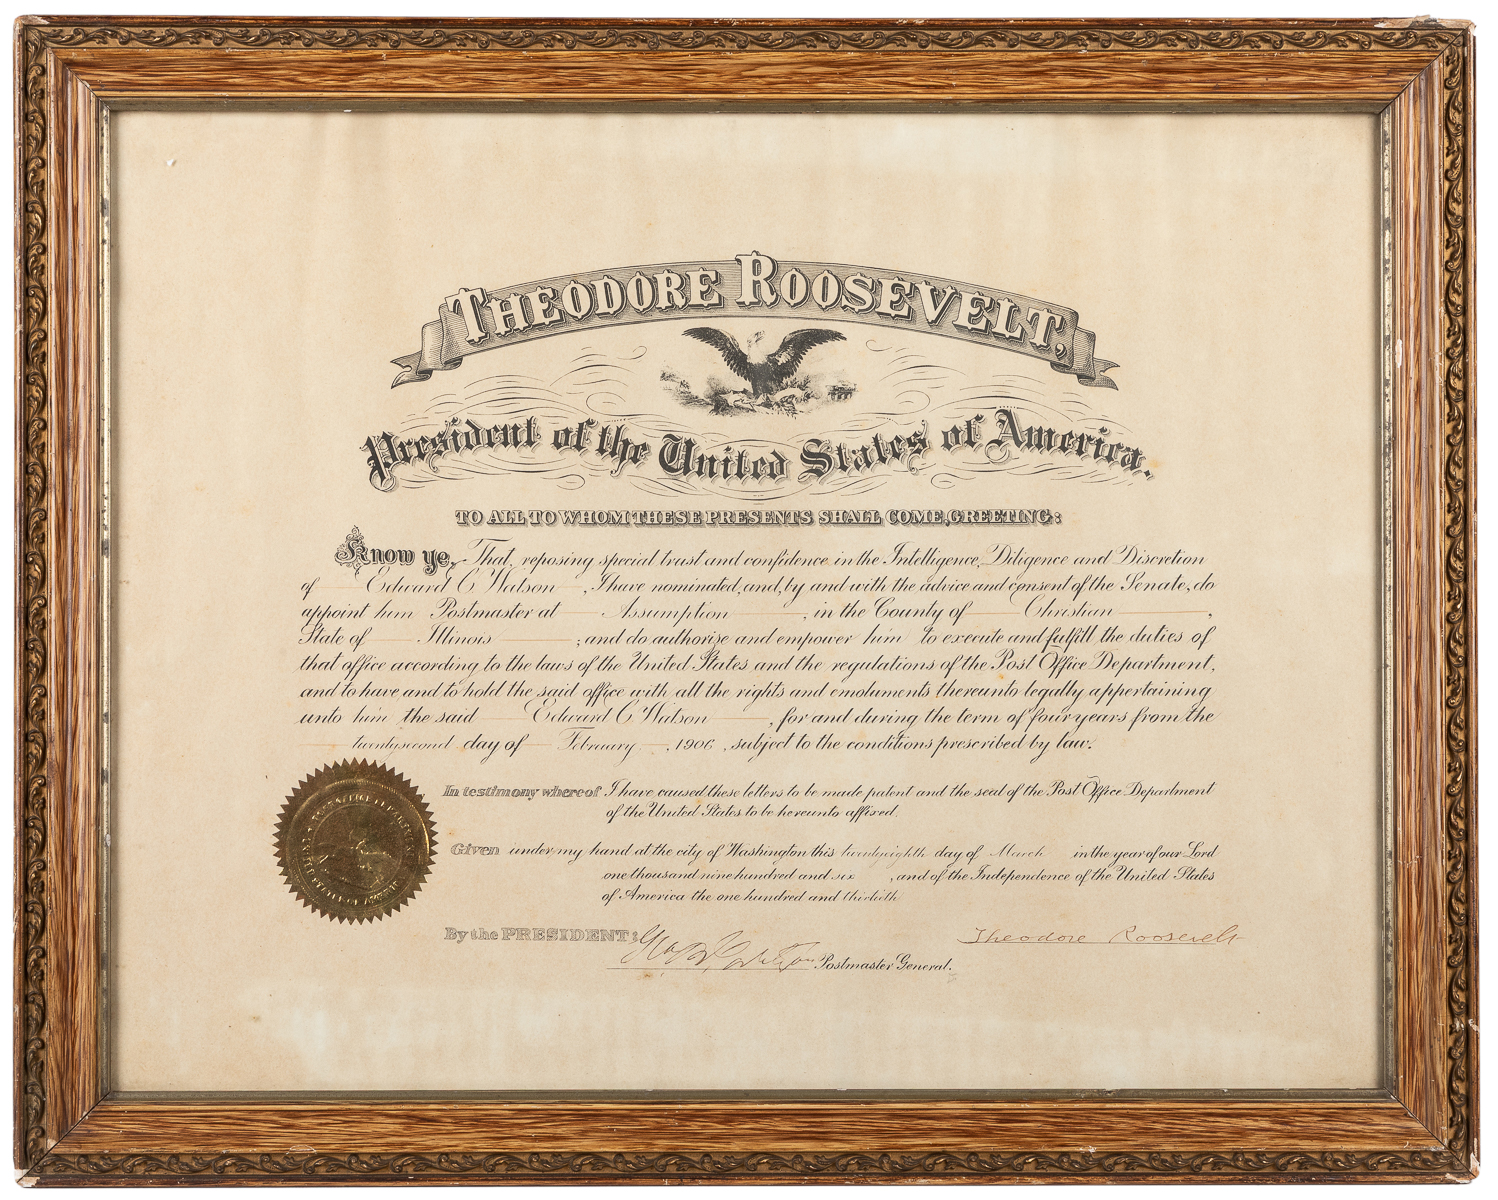 THEODORE ROOSEVELT,
President of the United States of America.
TO ALL TO WHOM THESE PRESENTS SHALL COME, GREETING:
Know ye, That, reposing special trust and confidence in the Intelligence, Diligence and Discretion
of Edward C. Watson, I have nominated, and, by and with the advice and consent of the Senate, do
appoint him Postmaster at Assumption, in the County of Christian,
State of Illinois; and do authorize and empower him to execute and fulfill the duties of
that office according to the laws of the United States and the regulations of the Post Office Department,
and to have and to hold the said office with all the rights and emoluments thereunto legally appertaining
unto him the said Edward C. Watson, for and during the term of four years from the
twentysecond day of February, 1906, subject to the conditions prescribed by law.
In testimony whereof I have caused these letters to be made patent and the seal of the Post Office Department
of the United States to be hereunto affixed.
Given under my hand at the city of Washington this twentyeighth day of March in the year of our Lord
one thousand nine hundred and six, and of the Independence of the United States
of America the one hundred and thirtieth
By the PRESIDENT: Theodore Roosevelt
Postmaster General.